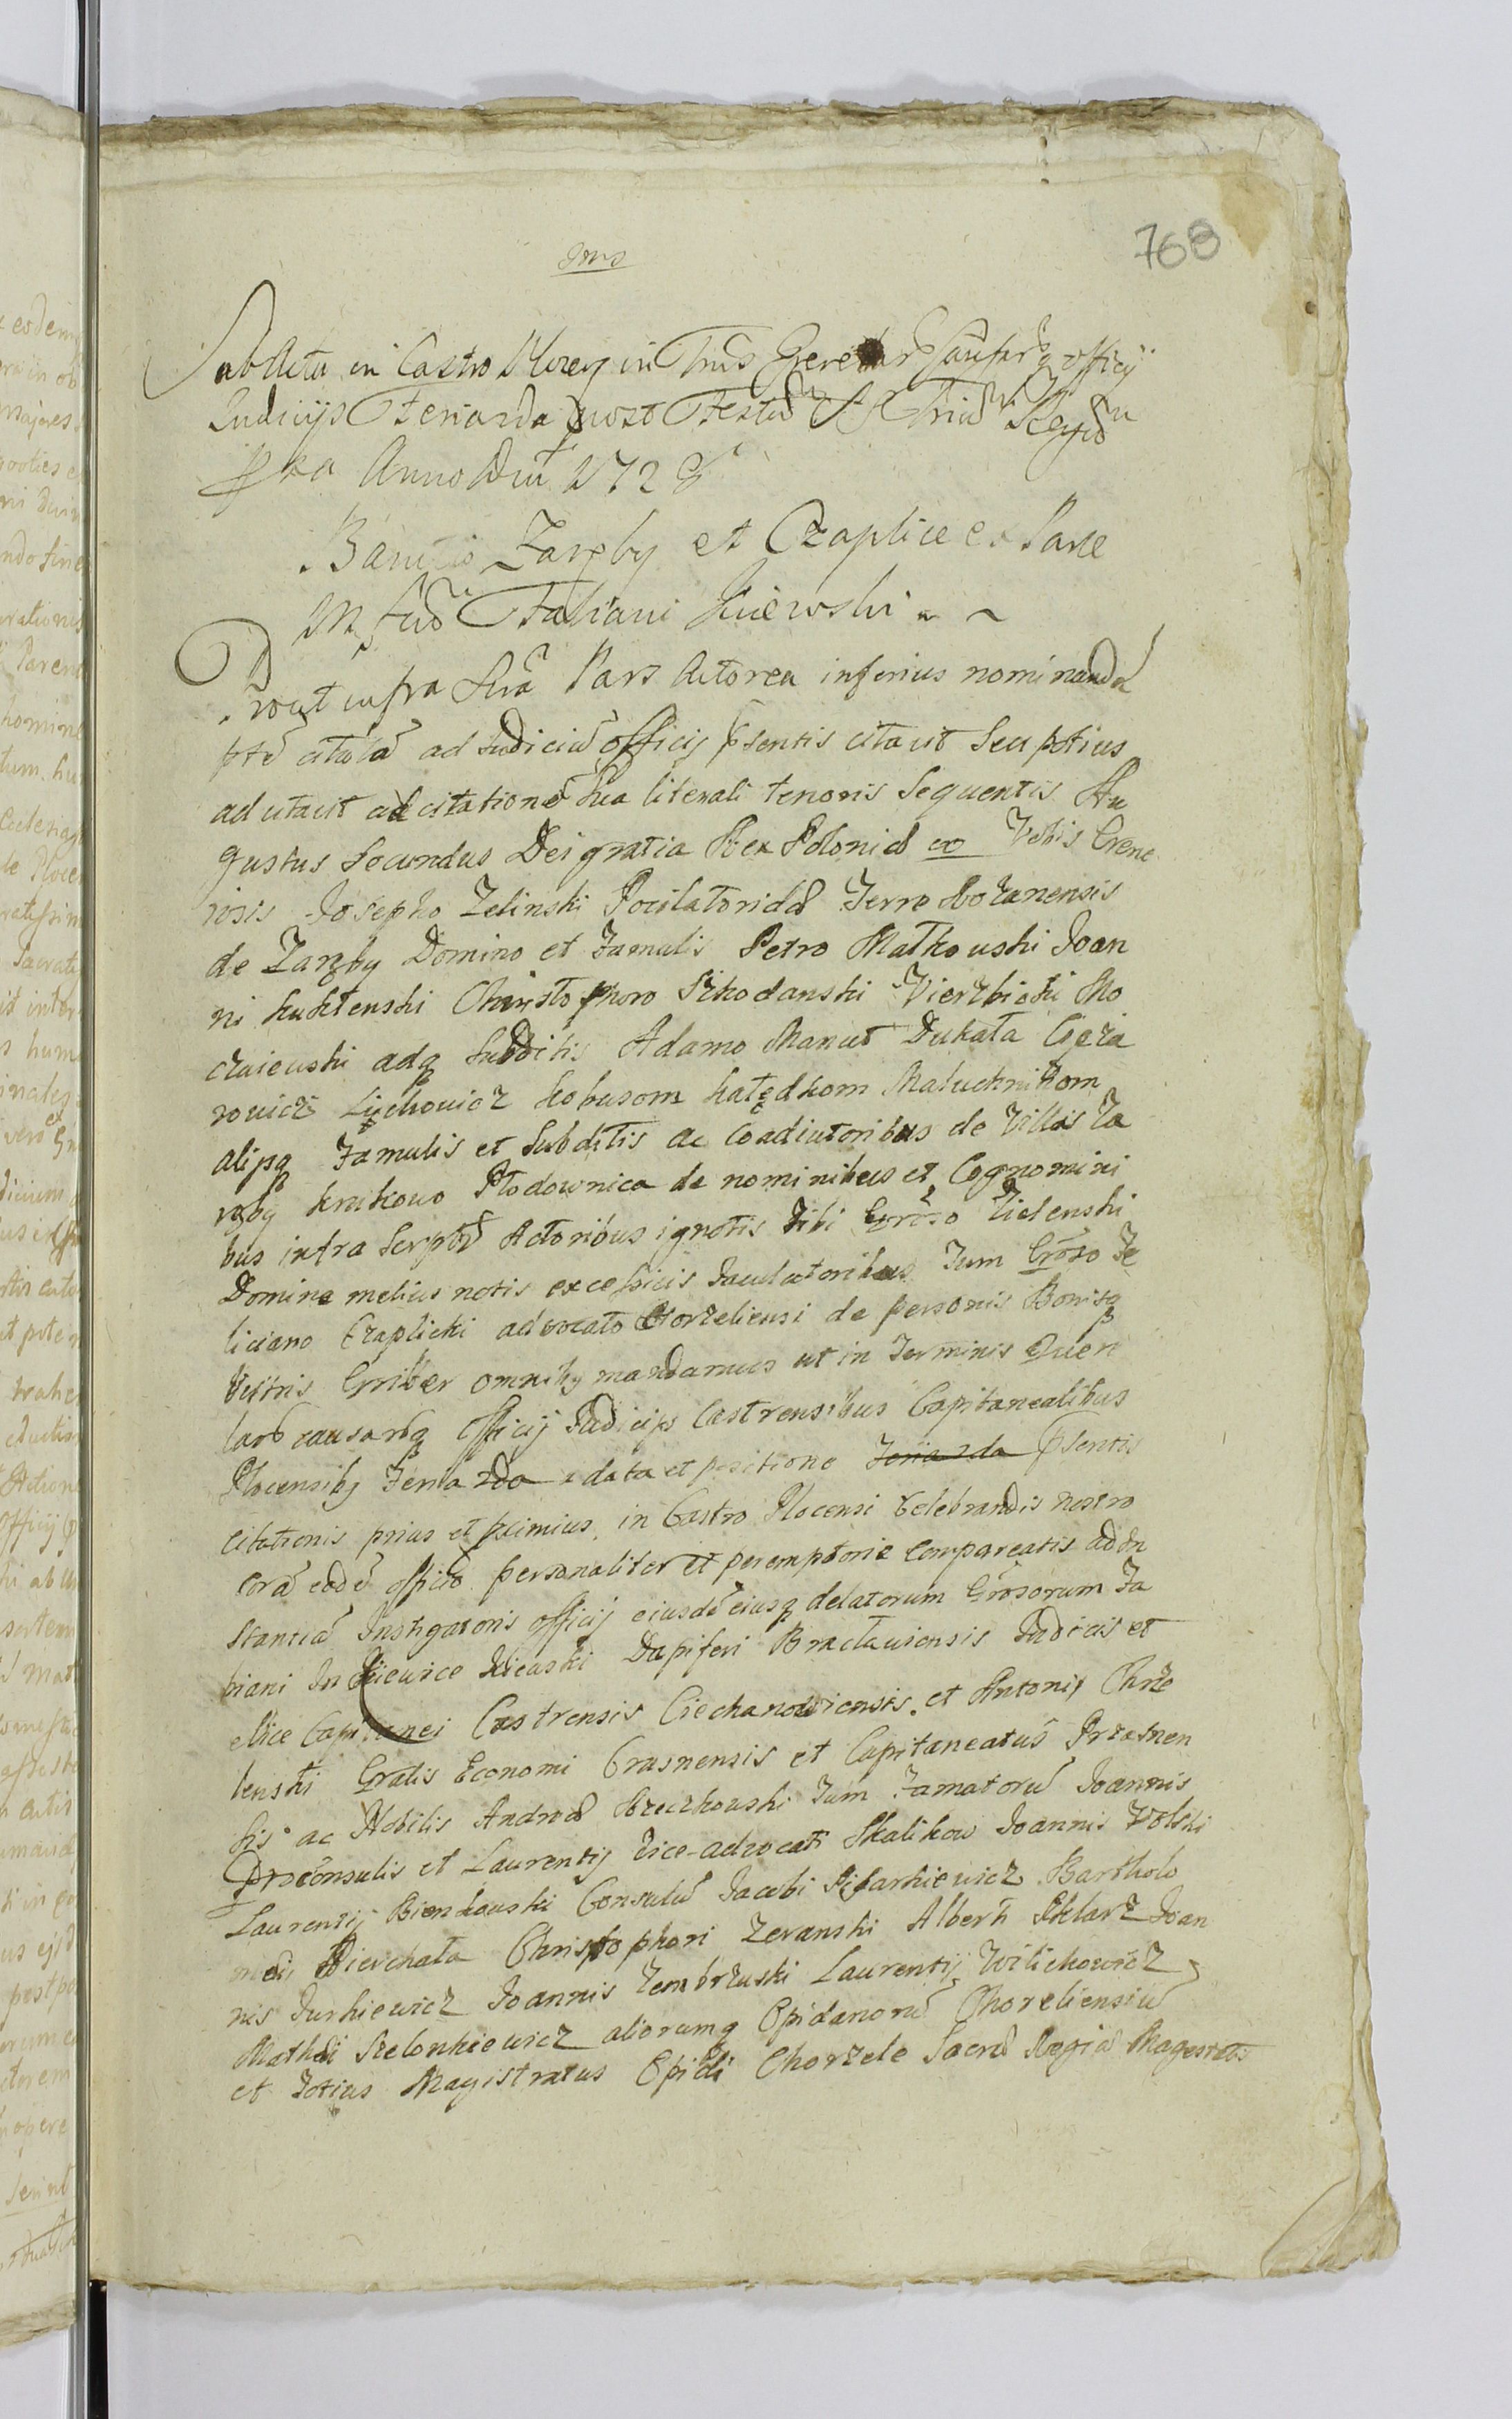 768
Jms
Sabbatu in Castro Plocen in Tnis officij
Judicijs Feriarda post Festũ SS Triũ Regũ
pxa Anno Dni 1728
Bannitio Zaręby et Czaplice ex Parte
Mfcũ Fabiani Kijewski
Prout infra Sĩra Pars Actorea inferius nominanda
ptẽ citatã ad Judiciũ officij pſentis citavit Seu potius
ad citavit ad citationẽ Sua literali tenoris Sequentis Au
gustus Secundus Dei gratia Rex Poloniæ Vobis Gene
rosis Josepho Zelinski Pocilatoridæ Terræ Rozanensis
de Zaręby Domino et Famulis Petro Malkouski Joan
ni kuklenski Christophoro Szkodanski Wierzbicki Mo
czaieuski adq Subditis Adamo Manut Dukata
rouicz Luchouicz kobusom kałędkom Maluchnikom
alijsq Famulis et Subditis ac Coadiutoribus de Villis Za
ręby krukowo Płodownica de nominibus et Cognomini
bus infra Scriptis Actoribus ignotis Tibi Grõso Zielenski
Domine melius notis excessiuis Jaculatoribus Tum Grõso Fe
liciano Czaplicki advocato Chorzeliensi de personis Bonisq
Vestris omnibus mandamus ut in Terminis Quere
larũ causarũq officij Judicijs Castrensibus Capitanealibus
Plocensibus Feriarda a data et positione Feriarda pſentis
Citationis prius et proximius in Castro Plocensi Celebrandis nostro
corã eodẽ officio personaliter et peremptorie compareatis ad In
stantiã Instigatoris officij eiusdẽ eiusq delatorum Grõsorum Fa
biani In Kijewice Kijewski Dapiferi Braclauiensis Judicis et
Vice Capitanei Castrensis Ciechanouiensis. et Antonij Chrze
lenski Gralis Economi Crasnensis et Capitaneatus Przasnen
sis ac Nobilis Andreæ Brzezkouski Tum Famatorũ Joannis
Proconsulis et Laurentij Vice-advocati Skalikow Joannis Wolski
Laurentij Bienkouski Consulũ Jacobi Pisarkiewicz Bartholo
mei Wierchała Christophori Zeranski Alberti Sklarz Joan
nis Jurkiewicz Joannis Zembrzuski Laurentij Wilichowicz
Mathei Szelonkiewicz aliorumq Opidanorũ Chorzeliensiũ
et Totius Magistratus Opidi Chorzele Sacræ Regiæ Magestatis